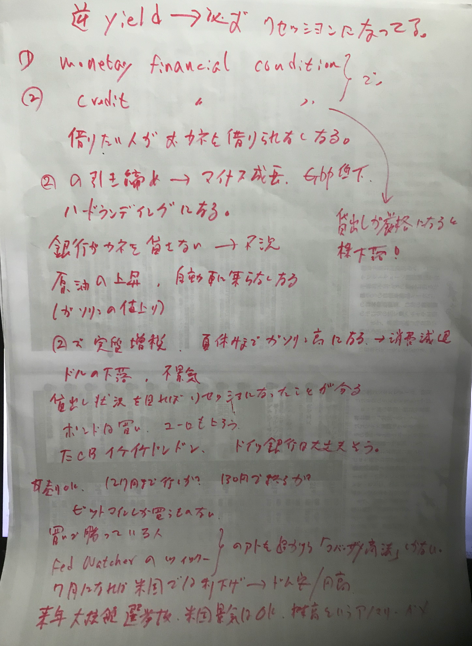 逆 yield → 必ず リセッションになってる。
① monetary financial condition
② credit 〃 〃 で、
借りたい人がおカネを借りられなくなる。
②の引き締め → マイナス成長、Gdp低下
ハードランディングになる。
貸出しが厳格になると
株下落!
銀行がカネを貸せない → 不況
原油の上春、自動車に乗らなくなる
(ガソリンの値上り)
②で実質増税、夏休みまでガソリン高になる → 消費減退
ドルの下落、不景気
貸出し状況を見ればリセッションになったことが分る
ポンドは買い、ユーロもよろう
ECB イケイケドンドン、ドイツ銀行は大丈夫そう。
OK、127円まで行くか? 130円で
ビットコインしか買うものない
買いで勝っている人
Fed Watcher のツイッター
のアトを追かける「コバンザメ商法」
7月になれば米国で利下げ → ドル安/円高
来年大統領選挙後、米国景気はOK、